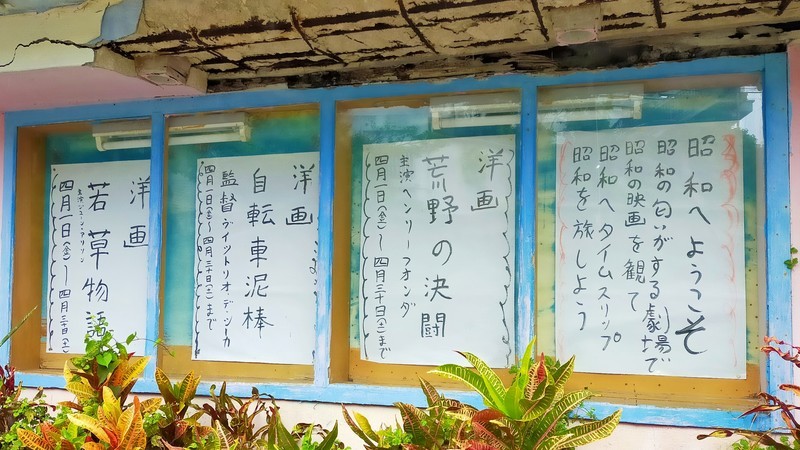 昭和へようこそ
昭和の匂いがする劇場で
昭和の映画を観て
昭和へタイムスリップ
昭和を旅しよう
洋画
荒野の決闘
主演ヘンリーフォンダ
四月一日(金)〜四月三十日(土)まで
洋画
自転車泥棒
監督ヴィットリオ・デ・シーカ
四月一日(金)〜四月三十日(土)まで
洋画
若草物語
主演ジューン・アリソン
四月一日(金)〜四月三十日(土)